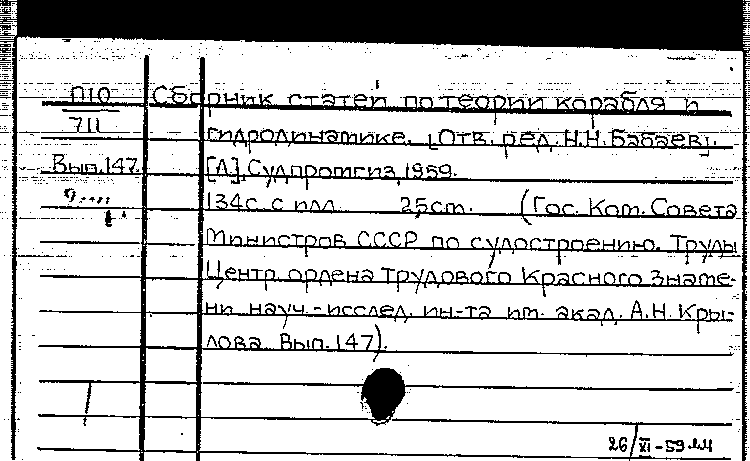 П10 Сборник статей по теории корабля и
711 гидродинамике. [Отв. ред. Н.Н. Бабаев].
Вып. 147. [Л], Судпромгиз, 1959.
134с. с илл. 25 cm. (Гос. Ком. Совета
Министров СССР по судостроению. Труды
Центр. ордена Трудового Красного Знаме-
ни науч.-исслед. ин-та им. акад. А.Н. Кры-
лова. Вып. 147).
26/XI-59